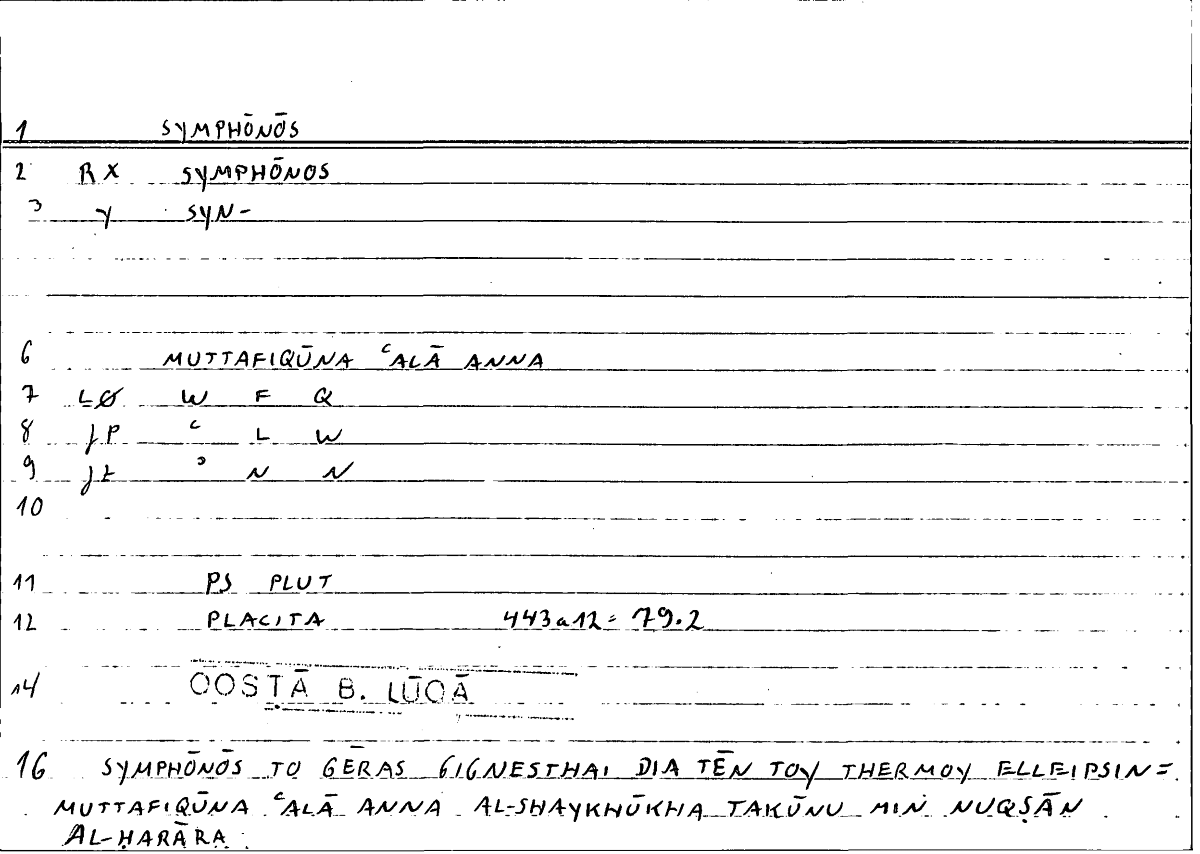 1 SYMPHŌNŌS
2 RX SYMPHŌNOS
3 Y SYN-
6 MUTTAFIQŪNA ʿALĀ ANNA
7 LØ W F Q
8 JP ʿ L W
9 ʾ N N
10
11 PS PLUT
12 PLACITA 443a12= 79.2
14 QOSṬĀ B. LŪQĀ
16 SYMPHŌNŌS TO GĒRAS GIGNESTHAI DIA TĒN TOY THERMOY ELLEIPSIN=
MUTTAFIQŪNA ʿALĀ ANNA AL-SHAYKHŪKHA TAKŪNU MIN NUQṢĀN
AL-ḤARĀRA